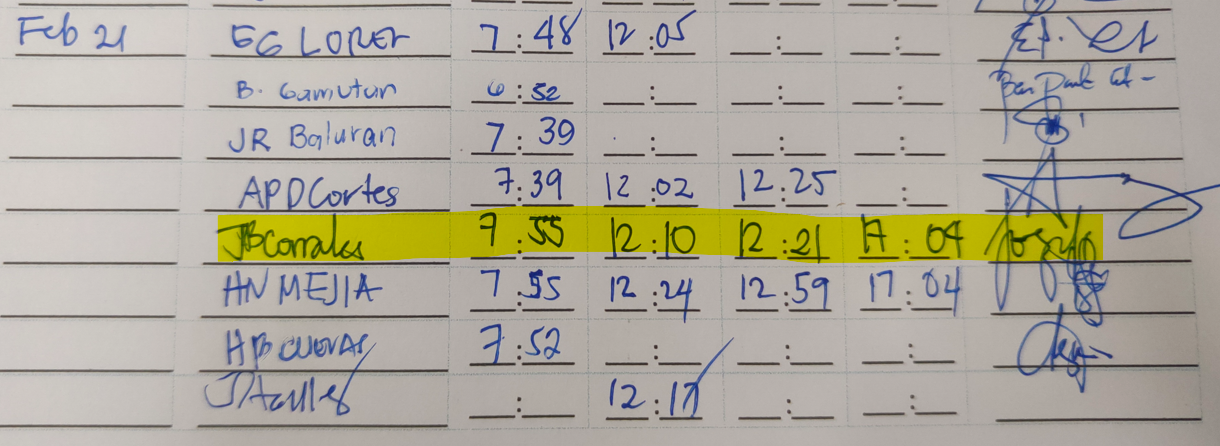 Feb 21 EG LORET 7:48 12:05 __:__ __:__
B. Gamutan 6:52 __:__ __:__ __:__
JR Baluran 7:39 __:__ __:__ __:__
APDCortes 7:39 12:02 12:25 __:__
JBCorrales 7:55 12:10 12:21 17:04
HN MEJIA 7:55 12:24 12:59 17:04
HB CUEVAS 7:52 __:__ __:__ __:__
__:__ 12:17 __:__ __:__